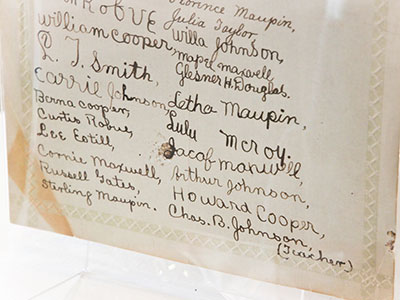 Florence Maupin,
Robve Julia Taylor,
William Cooper, Willa Johnson,
L. T. Smith, Mapel Maxwell,
Glesner H. Douglas.
Carrie Johnson, Letha Maupin,
Berna Cooper, Lulu McRoy.
Curtis Robus, Jacob Maxwell,
Lee Estill, Arthur Johnson,
Cornie Maxwell, Howard Cooper,
Russell Gates, Chas. B. Johnson,
Sterling Maupin. (Teacher)